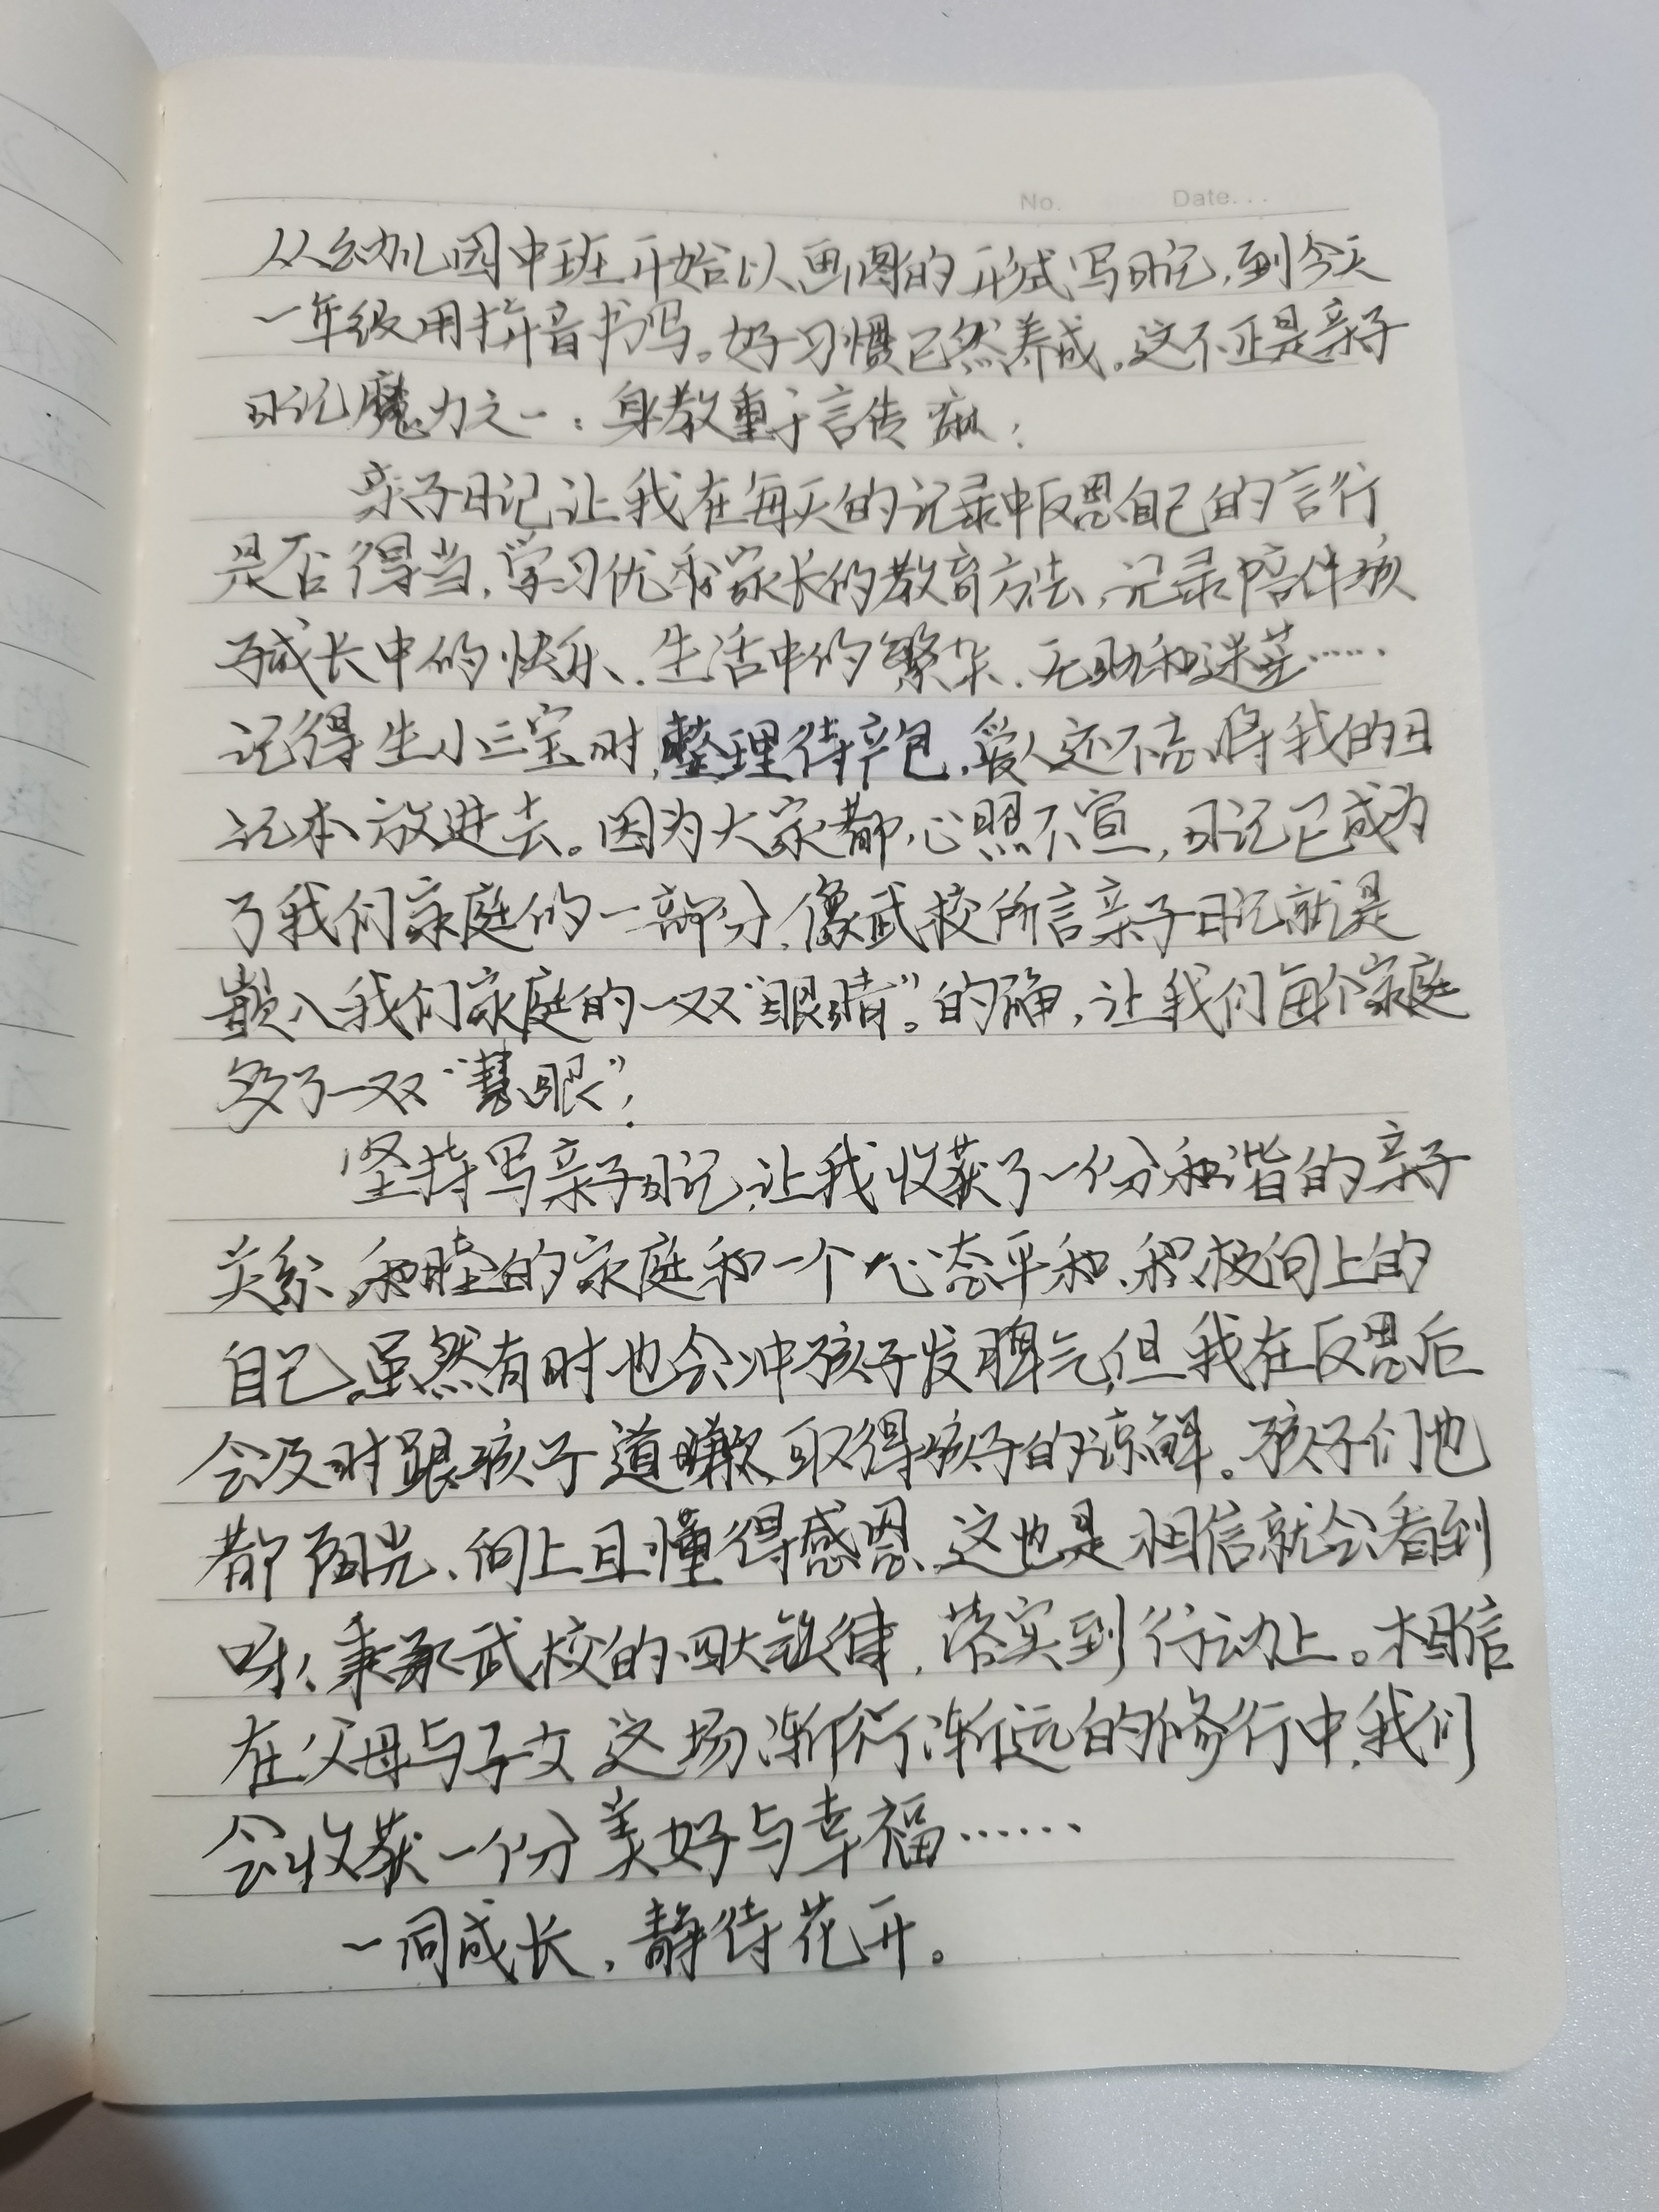 No.   Date...
从幼儿园中班开始以画图的形式写日记,到今天
一年级用拼音书写。好习惯已然养成。这不正是亲子
日记魔力之一:身教重于言传嘛!
亲子日记让我在每天的记录中反思自己的言行
是否得当,学习优秀家长的教育方法,记录陪伴孩
子成长中的快乐、生活中的繁杂、无助和迷茫……
记得生小三宝时,整理待产包,爱人还不忘将我的日
记本放进去。因为大家都心照不宣,日记已成为
了我们家庭的一部分,像武校所言亲子日记就是
嵌入我们家庭的一双“眼睛”。的确,让我们每个家庭
多了一双“慧眼”!
坚持写亲子日记,让我收获了一份和谐的亲子
关系,和睦的家庭和一个心态平和、积极向上的
自己。虽然有时也会冲孩子发脾气,但我在反思后
会及时跟孩子道歉,取得孩子的谅解。孩子们也
都阳光、向上且懂得感恩,这也是相信就会看到
呀!秉承武校的四大铁律,落实到行动上。相信
在父母与子女这场渐行渐远的修行中,我们
会收获一份美好与幸福……
一同成长,静待花开。